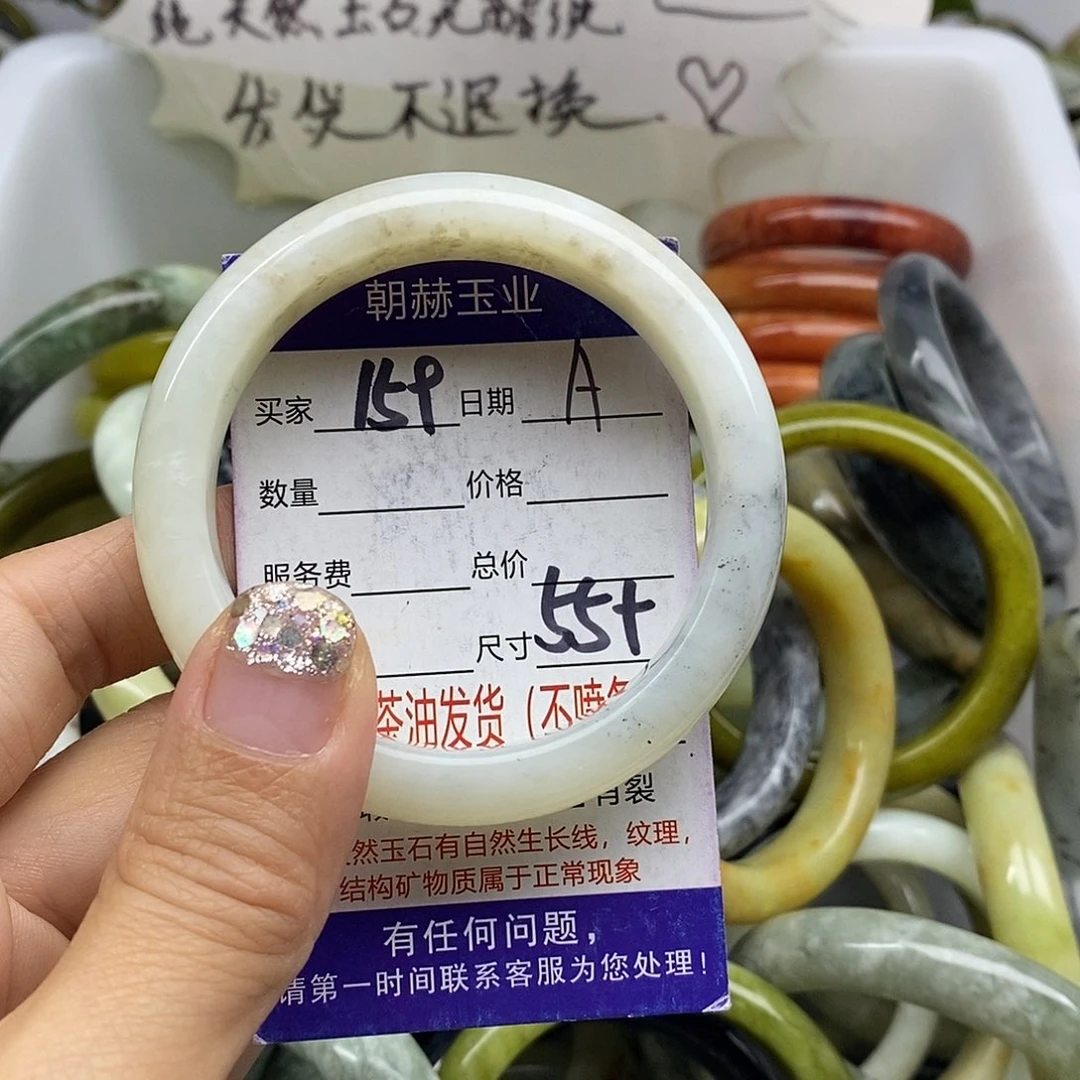 纯天然玉石无酸洗
发货 不退换
朝赫玉业
买家 159 日期 A
数量 价格
服务费 总价
尺寸 55+
茶油发货（不喷
有裂
然玉石有自然生长线，纹理，
结构矿物质属于正常现象
有任何问题，
请第一时间联系客服为您处理！